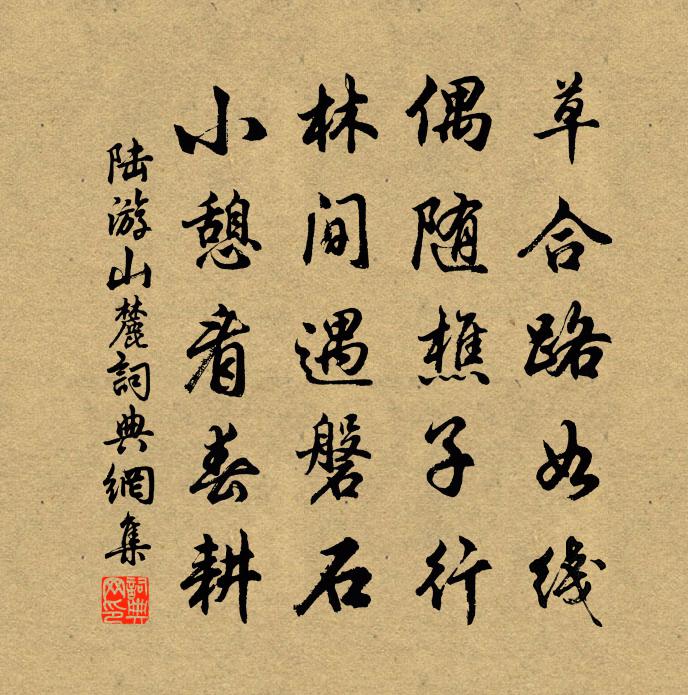 草合路如线
偶随樵子行
林间遇磐石
小憩看春耕
陆游山麓詞典網集
詞典网印